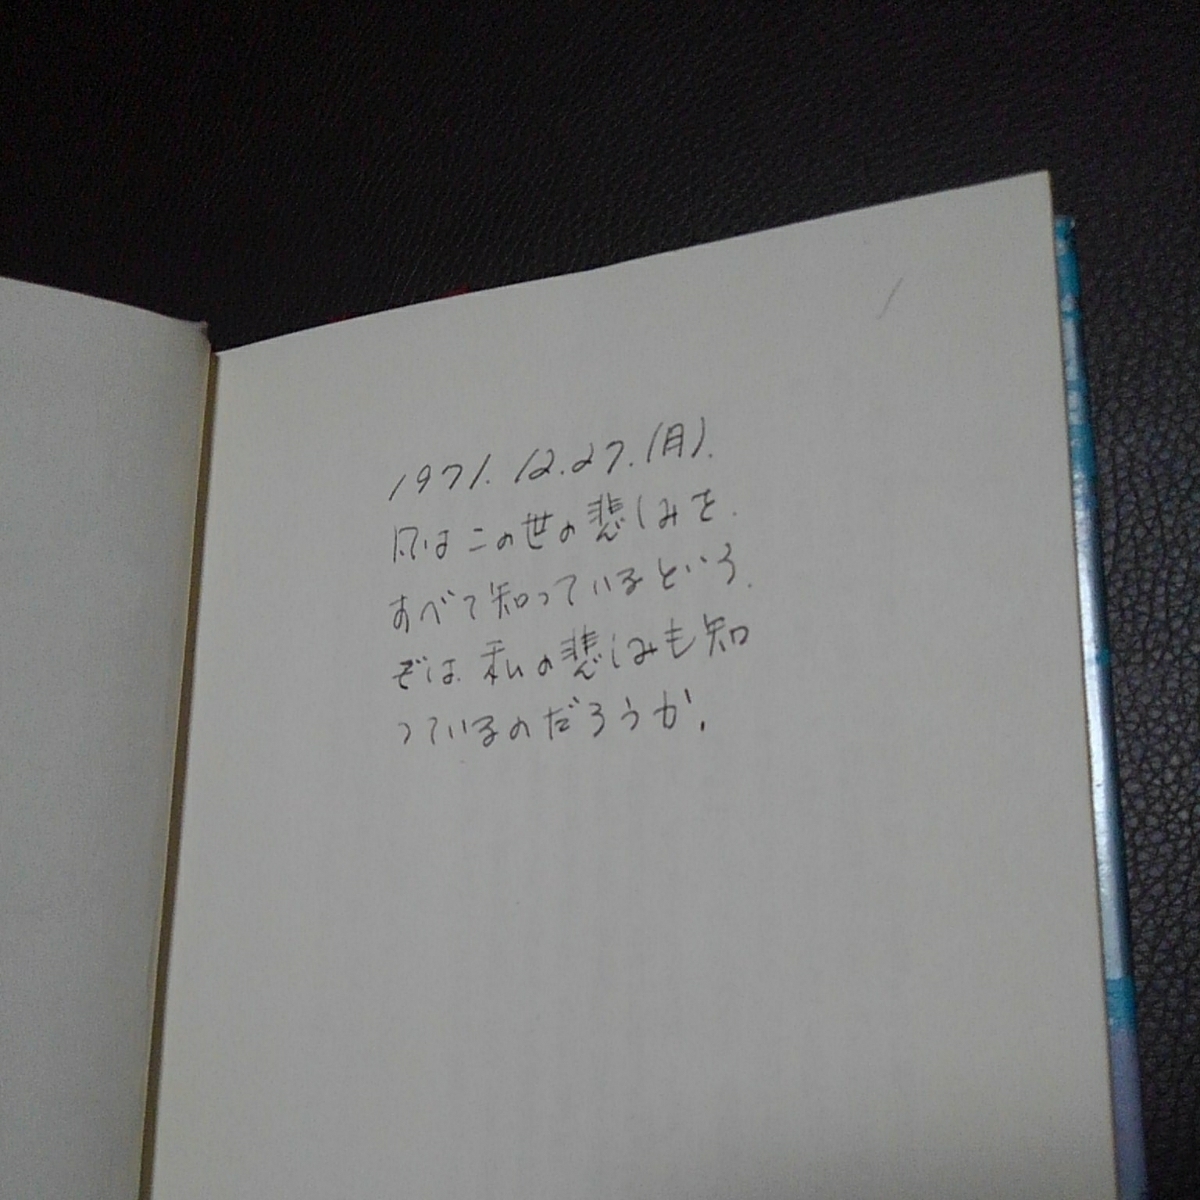 1971.12.27.(月).
風はこの世の悲しみを.
すべて知っているという.
では 私の悲しみも知
っているのだろうか.